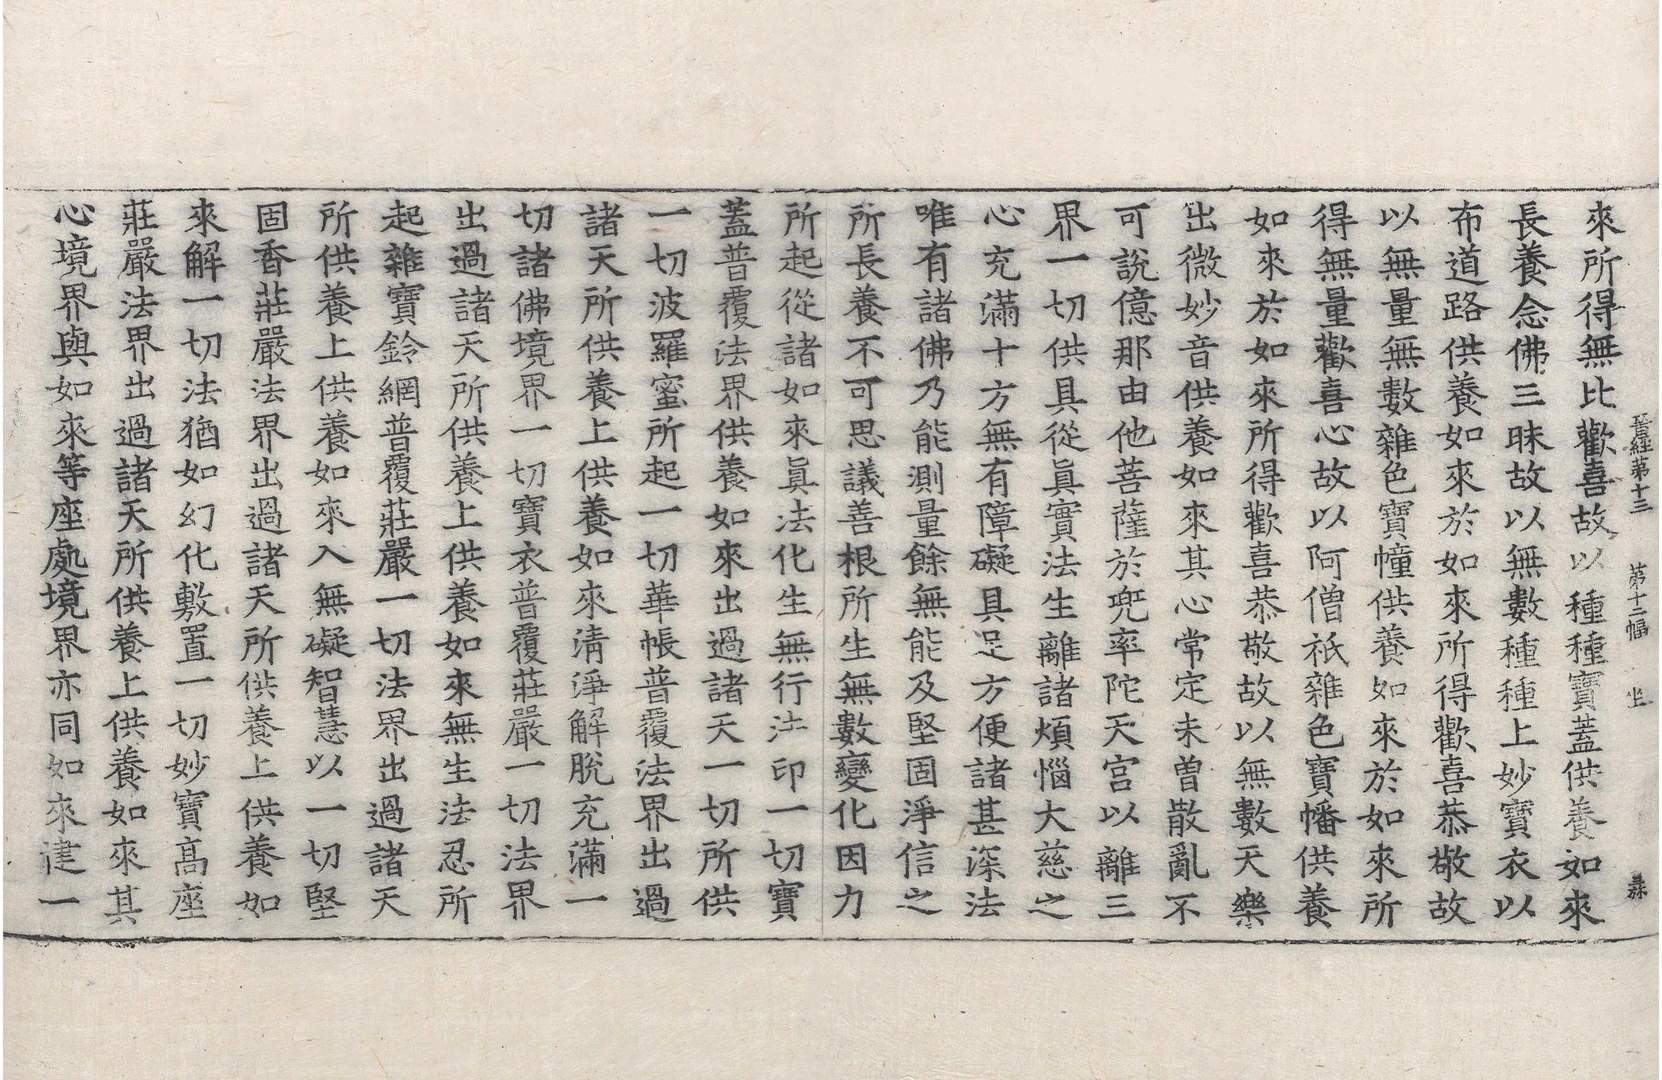 晉經第十三 第十二幅 㘴 彝
來所得無比歡喜故以種種寶蓋供養如來
長養念佛三昧故以無數種種上妙寶衣以
布道路供養如來於如來所得歡喜恭敬故
以無量無數雜色寶幢供養如來於如來所
得無量歡喜心故以阿僧祇雜色寶幡供養
如來於如來所得歡喜恭敬故以無數天樂
出微妙音供養如來其心常定未曾散亂不
可說億那由他菩薩於兜率陀天宮以離三
界一切供具從眞實法生離諸煩惱大慈之
心充滿十方無有障礙具足方便諸甚深法
唯有諸佛乃能測量餘無能及堅固淨信之
所長養不可思議善根所生無數變化因力
所起從諸如來眞法化生無行法印一切寶
蓋普覆法界供養如來出過諸天一切所供
一切波羅蜜所起一切華帳普覆法界出過
諸天所供養上供養如來淸淨解脫充滿一
切諸佛境界一切寶衣普覆莊嚴一切法界
出過諸天所供養上供養如來無生法忍所
起雜寶鈴網普覆莊嚴一切法界出過諸天
所供養上供養如來入無礙智慧以一切堅
固香莊嚴法界出過諸天所供養上供養如
來解一切法猶如幻化敷置一切妙寶高座
莊嚴法界出過諸天所供養上供養如來其
心境界與如來等座處境界亦同如來建一